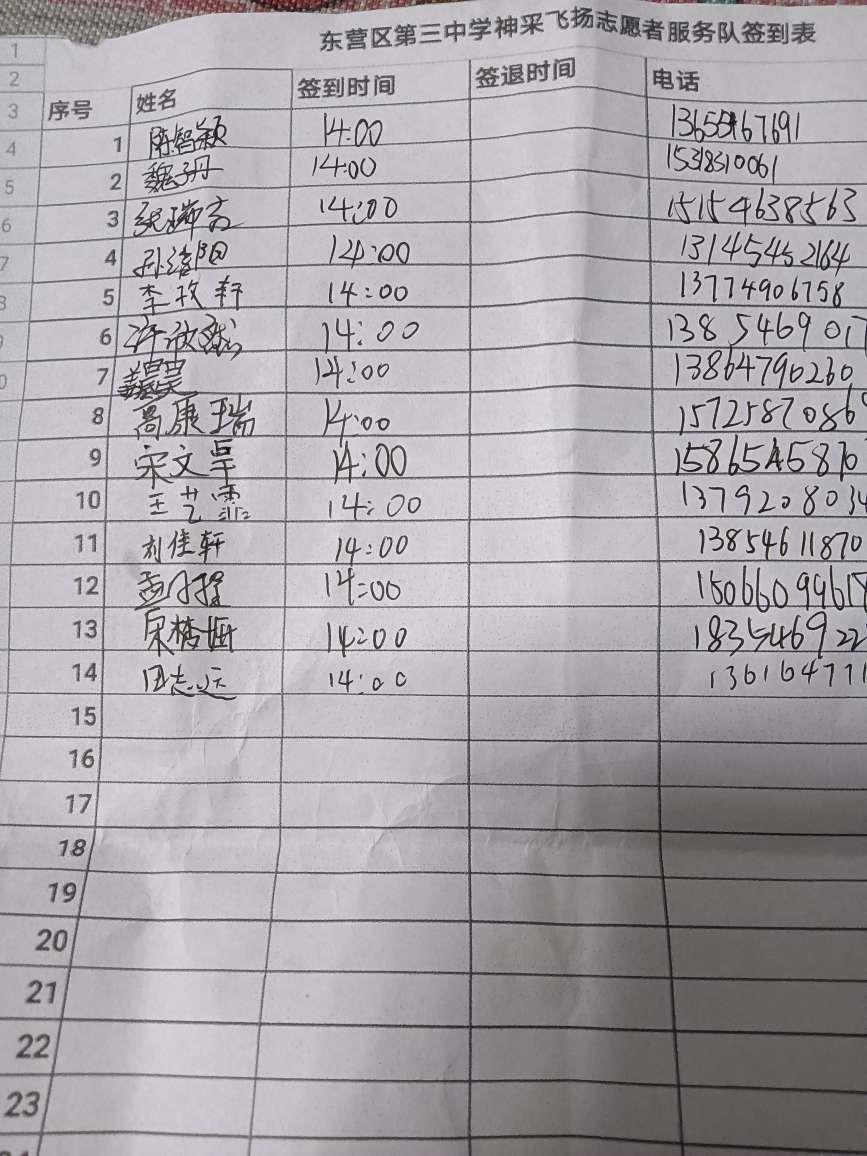 东营区第三中学神采飞扬志愿者服务队签到表
1
2
3 序号 姓名 签到时间 签退时间 电话
4 1 陈智颖 14:00
5 2 魏子丹 14:00 15318310061
6 3 张瑞言 14:00 15154638563
7 4 孙 阳 14:00 13145452164
8 5 李牧轩 14:00 13774906758
6 许欣 14:00 138 5469 01
0 7 14:00 13864790260
8 高康瑞 14:00 1572587086
9 宋文卓 14:00 1586545870
10 王艺霏 14:00 1379208034
11 刘佳轩 14:00 13854611870
12 孟 14:00 150660996
13 宋梓 14:00 183546922
14 田志远 14:00 136164771
15
16
17
18
19
20
21
22
23